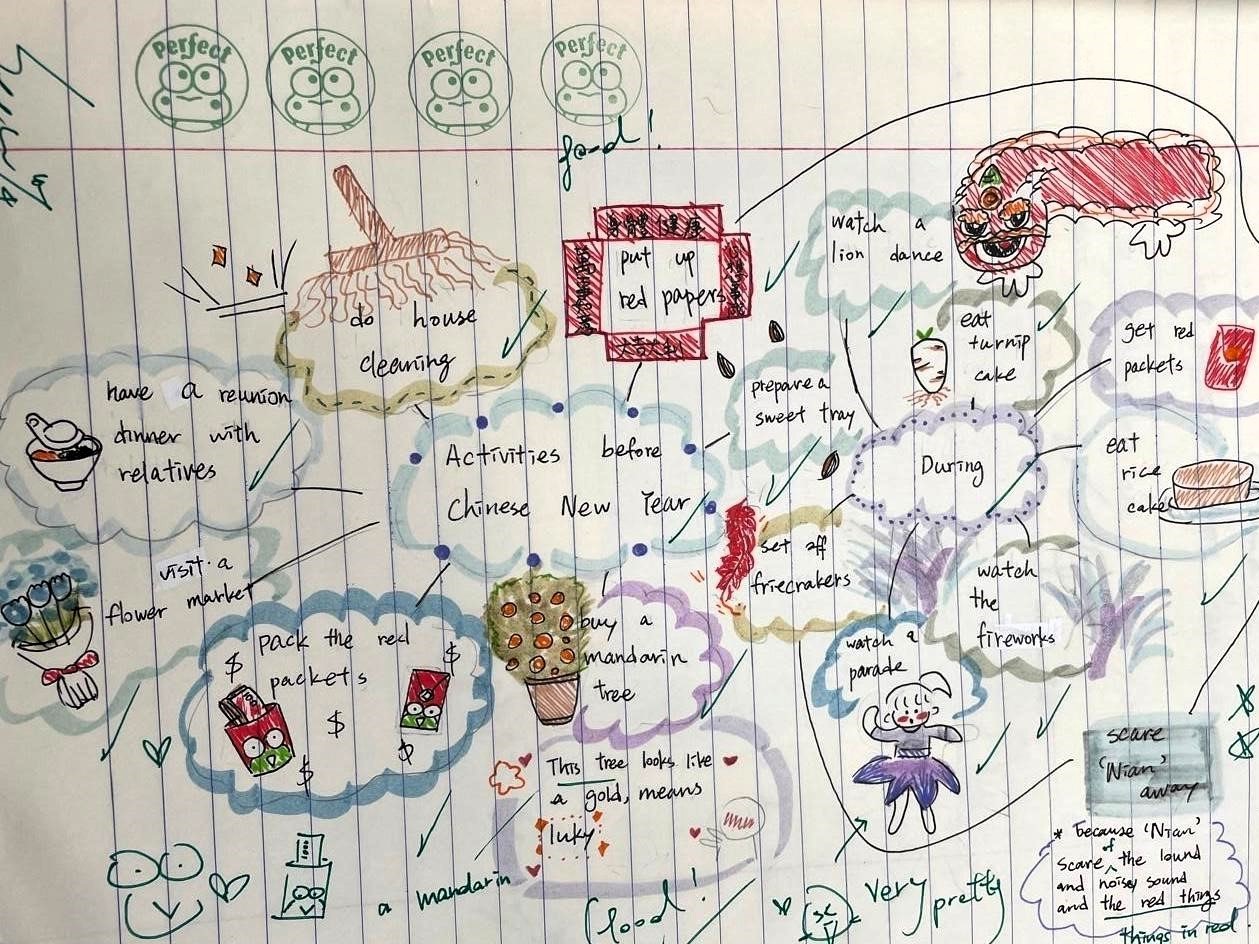 Perfect
Perfect
Perfect
Perfect
good!
身體健康
put up
red papers
大吉大利
心想事成
do house
cleaning
watch a
lion dance
eat
turnip
cake
get red
packets
have a reunion
dinner with
relatives
prepare a
sweet tray
Activities before
Chinese New Year
During
eat
rice
cake
set off
friecrakers
watch
the
fireworks
visit a
flower market
pack the red
packets
$
$
$
$
$
buy a
mandarin
tree
watch a
parade
This tree looks like
a gold, means
luky
a mandarin
Good!
very pretty
scare
'Nian'
away
* because 'Nian'
of
scare the lound
and noisy sound
and the red things
things in red